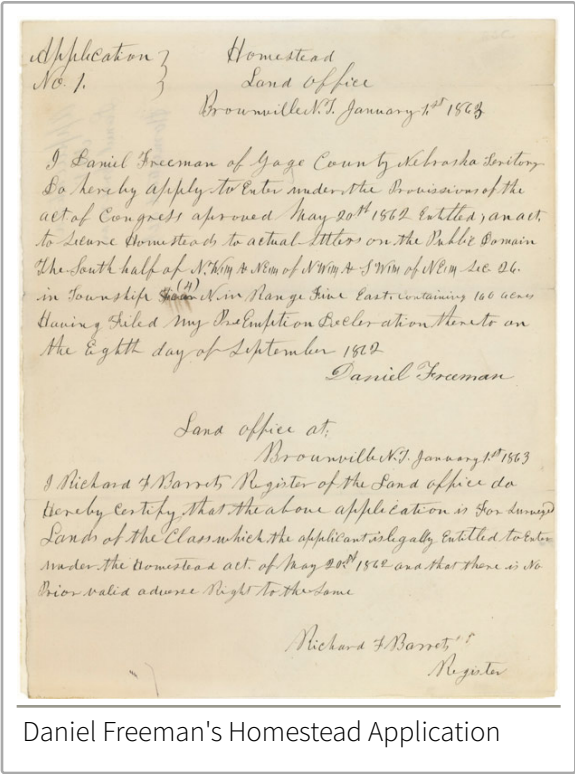 Application }
No. 1. }
Homestead
Land Office
Brownville N.T. January 1st 1863
I Daniel Freeman of Gage County Nebraska Teritory
Do hereby apply to Enter under the Provissions of the
act of Congress aproved May 20th 1862 Entitled, an act,
to Secure Homesteads to actual Settlers on the Public Domain
The South half of N.W¼ & NE¼ of NW¼ & SW¼ of NE¼ Sec. 26.
in Township (4) N in Range Five East, containing 160 acres
Having Filed my Pre Emption Decleration thereto on
the Eighth day of September 1862
Daniel Freeman
Land office at;
Brownville N.T. January 1st 1863
I Richard F Barrett Register of the Land office do
Hereby Certify that the above application is For Surveyed
Lands of the Class which the applicant is legally Entitled to Enter
under the Homestead act. of May 20th 1862 and that there is No
Prior valid adverse Right to the Same
Richard F Barrett
Register
Daniel Freeman's Homestead Application